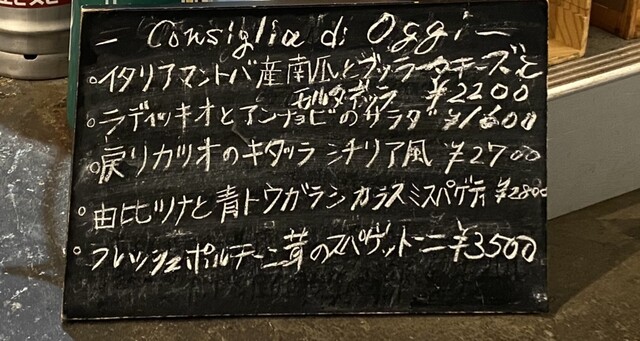 — Consiglia di Oggi —
○イタリアマントバ産南瓜とブッラータチーズと
モルタデッラ ¥2200
○ラディッキオとアンチョビのサラダ ¥1600
○戻りカツオのキタッラ シチリア風 ¥2700
○由比ツナと青トウガラシ カラスミスパゲティ ¥2800
○フレッシュポルチーニ茸のスパゲットーニ ¥3500